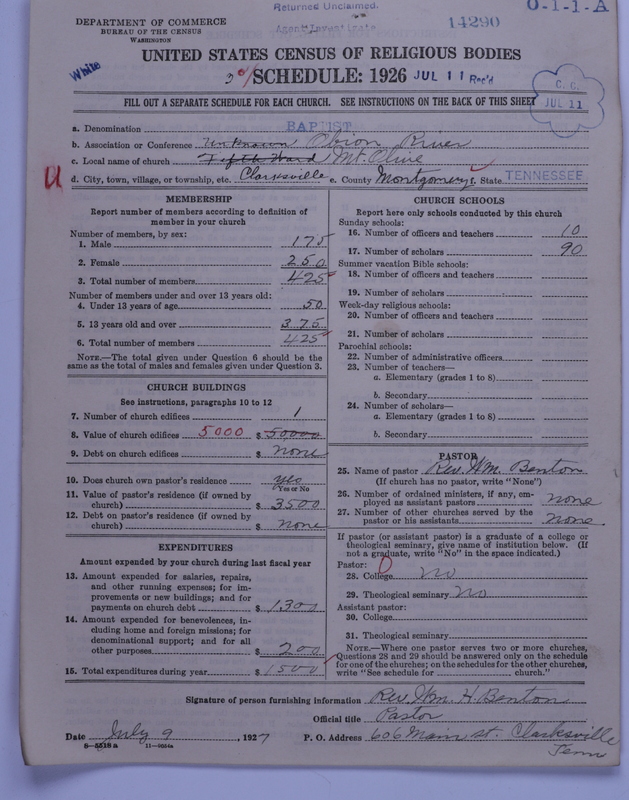 Returned Unclaimed.
O-1-1-A
DEPARTMENT OF COMMERCE
BUREAU OF THE CENSUS
WASHINGTON
14290
UNITED STATES CENSUS OF RELIGIOUS BODIES
White
SCHEDULE: 1926 JUL 11 Rec'd
C. C.
JUL 11
FILL OUT A SEPARATE SCHEDULE FOR EACH CHURCH. SEE INSTRUCTIONS ON THE BACK OF THIS SHEET
a. Denomination BAPTIST
b. Association or Conference Unknown Obion River
c. Local name of church Fifth Ward Mt. Olive
d. City, town, village, or township, etc. Clarksville e. County Montgomery f. State TENNESSEE
MEMBERSHIP
Report number of members according to definition of
member in your church
Number of members, by sex:
1. Male 175
2. Female 250
3. Total number of members 425
Number of members under and over 13 years old:
4. Under 13 years of age 50
5. 13 years old and over 375
6. Total number of members 425
NOTE.—The total given under Question 6 should be the
same as the total of males and females given under Question 3.
CHURCH BUILDINGS
See instructions, paragraphs 10 to 12
7. Number of church edifices 1
8. Value of church edifices 5000 $ 50000
9. Debt on church edifices $ none
10. Does church own pastor's residence yes
Yes or No
11. Value of pastor's residence (if owned by
church) $ 3500
12. Debt on pastor's residence (if owned by
church) $ none
EXPENDITURES
Amount expended by your church during last fiscal year
13. Amount expended for salaries, repairs,
and other running expenses; for im-
provements or new buildings; and for
payments on church debt $ 1300
14. Amount expended for benevolences, in-
cluding home and foreign missions; for
denominational support; and for all
other purposes $ 200
15. Total expenditures during year $ 1500
CHURCH SCHOOLS
Report here only schools conducted by this church
Sunday schools:
16. Number of officers and teachers 10
17. Number of scholars 90
Summer vacation Bible schools:
18. Number of officers and teachers
19. Number of scholars
Week-day religious schools:
20. Number of officers and teachers
21. Number of scholars
Parochial schools:
22. Number of administrative officers
23. Number of teachers—
a. Elementary (grades 1 to 8)
b. Secondary
24. Number of scholars—
a. Elementary (grades 1 to 8)
b. Secondary
PASTOR
25. Name of pastor Rev. Wm. Benton
(If church has no pastor, write "None")
26. Number of ordained ministers, if any, em-
ployed as assistant pastors none
27. Number of other churches served by the
pastor or his assistants none
If pastor (or assistant pastor) is a graduate of a college or
theological seminary, give name of institution below. (If
not a graduate, write "No" in the space indicated.)
Pastor:
28. College no
29. Theological seminary no
Assistant pastor:
30. College
31. Theological seminary
NOTE.—Where one pastor serves two or more churches,
Questions 28 and 29 should be answered only on the schedule
for one of the churches; on the schedules for the other churches,
write "See schedule for church."
Signature of person furnishing information Rev. Wm H. Benton
Official title Pastor
Date July 9, 1927 P. O. Address 606 Main st. Clarksville
Tenn
8-5518 a 11-9034a